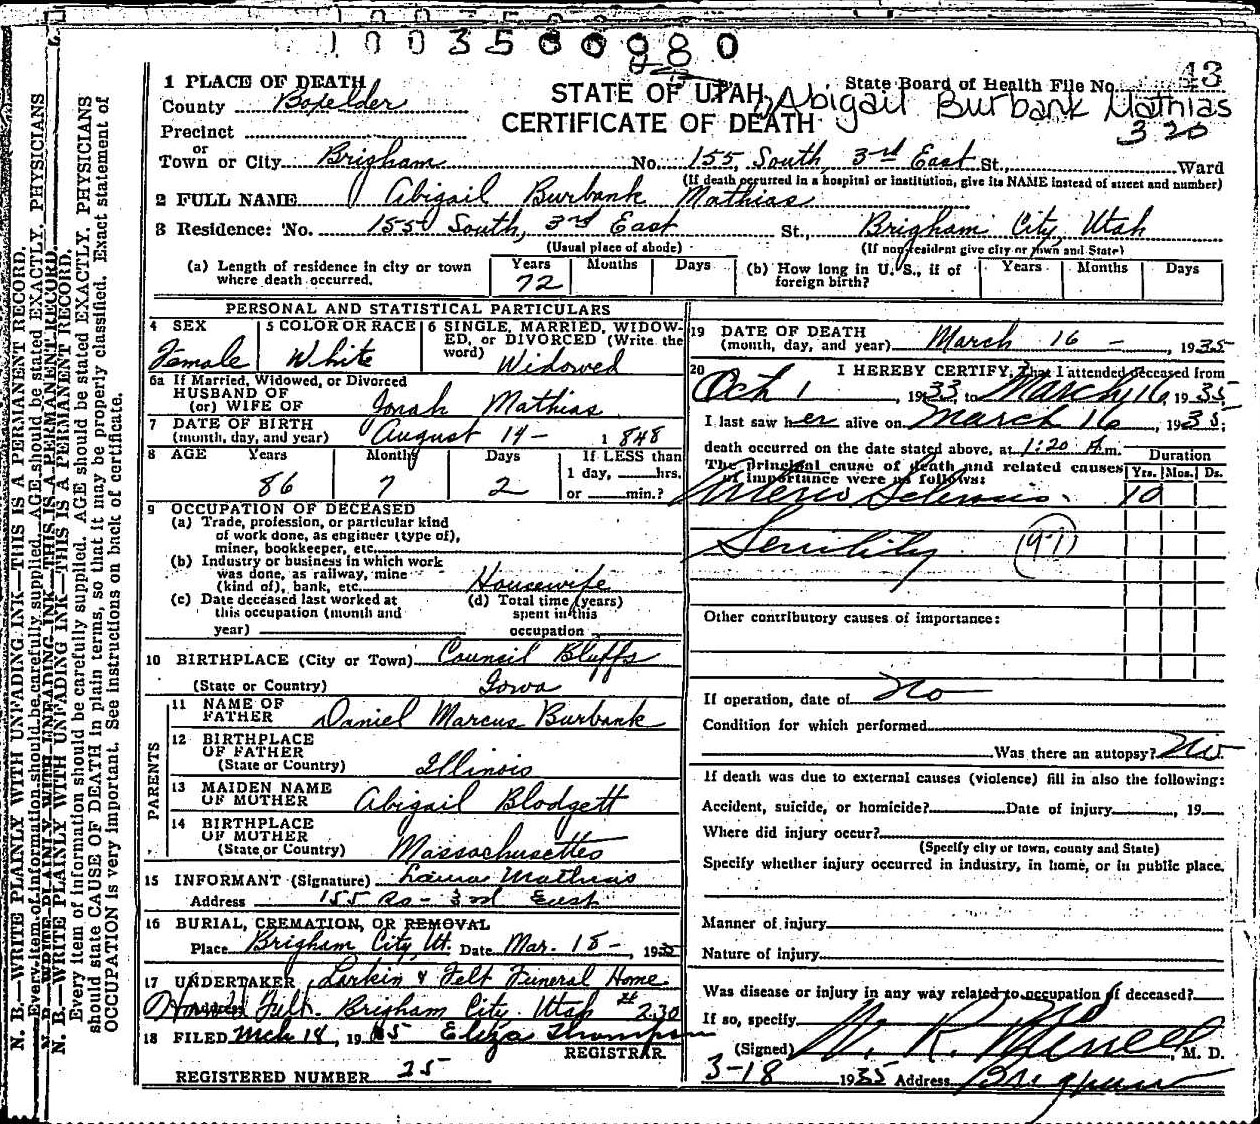 1003500980
43
1 PLACE OF DEATH
County Boxelder
Precinct
or
Town or City Brigham No. 155 South 3rd East St., Ward
(If death occurred in a hospital or institution, give its NAME instead of street and number)
STATE OF UTAH
CERTIFICATE OF DEATH
State Board of Health File No.
Abigail Burbank Mathias
320
2 FULL NAME Abigail Burbank Mathias
3 Residence: No. 155 South, 3rd East St., Brigham City, Utah
(Usual place of abode) (If nonresident give city or town and State)
(a) Length of residence in city or town where death occurred. Years 72 Months Days
(b) How long in U. S., if of foreign birth? Years Months Days
PERSONAL AND STATISTICAL PARTICULARS
4 SEX Female
5 COLOR OR RACE White
6 SINGLE, MARRIED, WIDOWED, or DIVORCED (Write the word) Widowed
6a If Married, Widowed, or Divorced
HUSBAND OF
(or) WIFE OF Jonah Mathias
7 DATE OF BIRTH
(month, day, and year) August 14- 1848
8 AGE Years 86 Months 7 Days 2 If LESS than
1 day, hrs.
or min.?
9 OCCUPATION OF DECEASED
(a) Trade, profession, or particular kind
of work done, as engineer (type of),
miner, bookkeeper, etc.
(b) Industry or business in which work
was done, as railway, mine
(kind of), bank, etc. Housewife
(c) Date deceased last worked at
this occupation (month and
year)
(d) Total time (years)
spent in this
occupation
10 BIRTHPLACE (City or Town) Council Bluffs
(State or Country) Iowa
PARENTS
11 NAME OF
FATHER Daniel Marcus Burbank
12 BIRTHPLACE
OF FATHER
(State or Country) Illinois
13 MAIDEN NAME
OF MOTHER Abigail Blodgett
14 BIRTHPLACE
OF MOTHER
(State or Country) Massachusettes
15 INFORMANT (Signature) Mathias
Address 155 So- 3rd East
16 BURIAL, CREMATION, OR REMOVAL
Place Brigham City, Ut. Date Mar. 18- 1935
17 UNDERTAKER Larkin & Felt Funeral Home
Address Felt. Brigham City, Utah #230
18 FILED Mch 18, 1935 Eliza Thompson
REGISTRAR.
REGISTERED NUMBER 25
19 DATE OF DEATH
(month, day, and year) March 16 -, 1935
20 I HEREBY CERTIFY, That I attended deceased from
Oct 1, 1933, to March 16, 1935
I last saw her alive on March 16, 1935;
death occurred on the date stated above, at 1:20 A.m.
The principal cause of death and related causes
of importance were as follows:
Duration
Yrs. Mos. Ds.
Arterio Sclerosis. 10
Senility (97)
Other contributory causes of importance:
If operation, date of No
Condition for which performed
Was there an autopsy? No
If death was due to external causes (violence) fill in also the following:
Accident, suicide, or homicide? Date of injury, 19
Where did injury occur?
(Specify city or town, county and State)
Specify whether injury occurred in industry, in home, or in public place.
Manner of injury
Nature of injury
Was disease or injury in any way related to occupation of deceased?
No
If so, specify
(Signed) W. R. Merrell, M. D.
3-18 1935 Address Brigham
N. B.—WRITE PLAINLY WITH UNFADING INK—THIS IS A PERMANENT RECORD.
Every item of information should be carefully supplied. AGE should be stated EXACTLY. PHYSICIANS
N. B.—WRITE PLAINLY WITH UNFADING INK—THIS IS A PERMANENT RECORD.
Every item of information should be carefully supplied. AGE should be stated EXACTLY. PHYSICIANS
should state CAUSE OF DEATH in plain terms, so that it may be properly classified. Exact statement of
OCCUPATION is very important. See instructions on back of certificate.